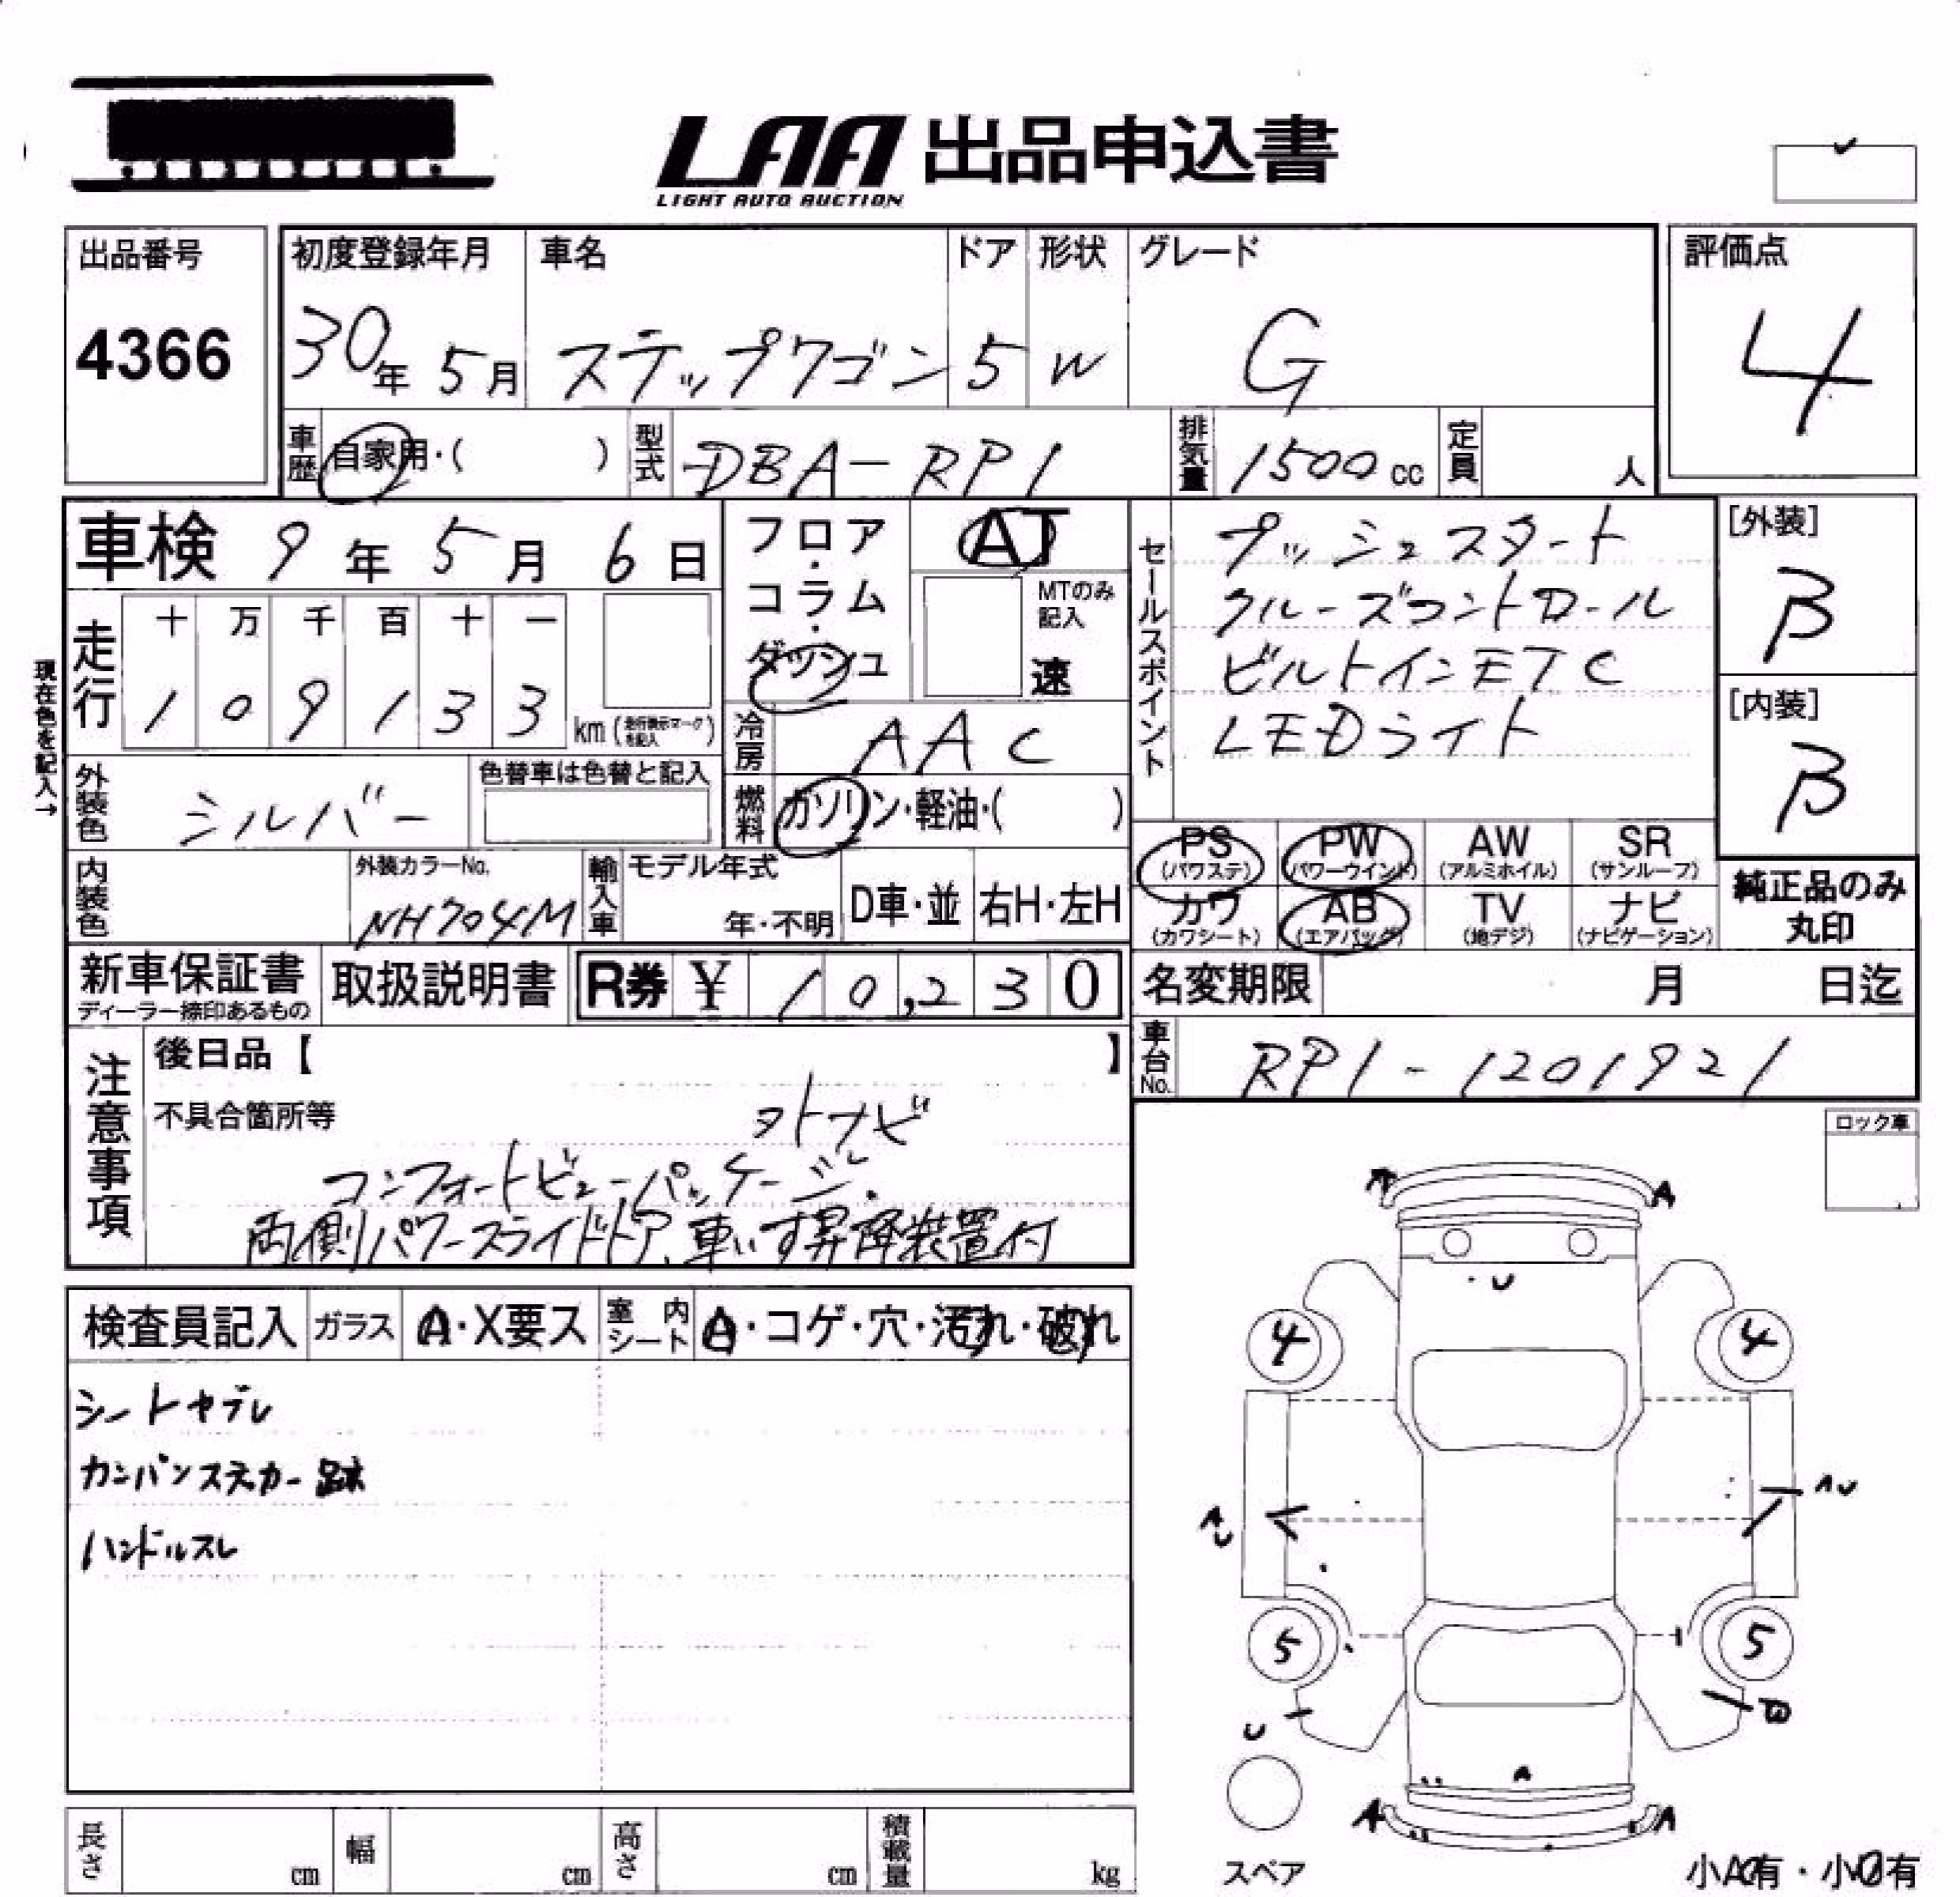 LAA 出品申込書
LIGHT AUTO AUCTION
出品番号
4366
初度登録年月
30年 5月
車名
ステップワゴン
ドア
5
形状
W
グレード
G
評価点
4
車歴 自家用・( )
型式 DBA-RP1
排気量 1500cc
定員 人
車検 9年 5月 6日
走行
十 万 千 百 十 一
1 0 9 1 3 3
km(走行表示マークを記入)
現在色を記入→
外装色 シルバー
色替車は色替と記入
内装色
外装カラーNo.
NH704M
輸入車
モデル年式
年・不明
D車・並
右H・左H
フロア・コラム・ダッシュ
AT
MTのみ記入
速
冷房 AAC
燃料 ガソリン・軽油・( )
セールスポイント
プッシュスタート
クルーズコントロール
ビルトインETC
LEDライト
[外装]
B
[内装]
B
PS (パワステ)
PW (パワーウインド)
AW (アルミホイル)
SR (サンルーフ)
カワ (カワシート)
AB (エアバッグ)
TV (地デジ)
ナビ (ナビゲーション)
純正品のみ丸印
新車保証書
ディーラー捺印あるもの
取扱説明書
R券 ¥ 10,230
名変期限 月 日迄
車台No. RP1-1201921
注意事項
後日品【 】
不具合箇所等
外ナビ
コンフォートビューパッケージ.
両側パワースライドドア、車いす昇降装置付
ロック車
検査員記入
ガラス A・X要ス
室内シート A・コゲ・穴・汚れ・破れ
シートヤブレ
カンバンステカー跡
ハンドルスレ
A A
U
4 4
AU
AU
5 5
U
B
A
A A
スペア
小A有・小U有
長さ cm
幅 cm
高さ cm
積載量 kg